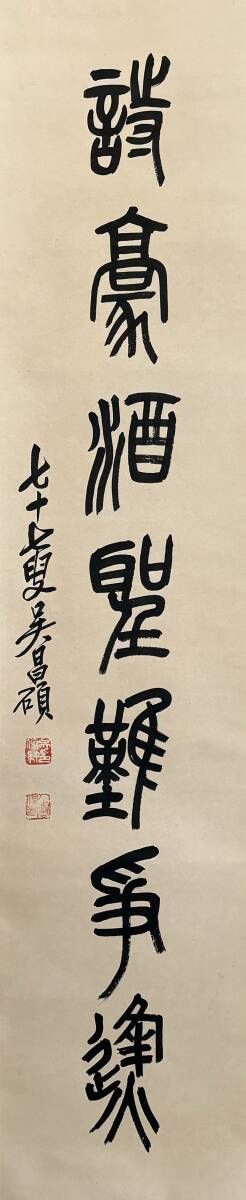 詩豪酒聖難爭鋒
七十七叟吳昌碩